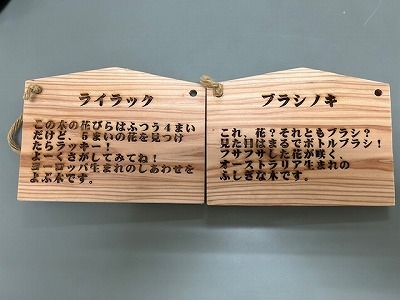 ライラック
この木の花びらはふつう4まい
だけど、5まいの花を見つけ
たらラッキー!
よーくさがしてみてね!
ヨーロッパ生まれのしあわせを
よぶ木です。
ブラシノキ
これ、花?それともブラシ?
見た目はまるでボトルブラシ!
フサフサした花が咲く、
オーストラリア生まれの
ふしぎな木です。